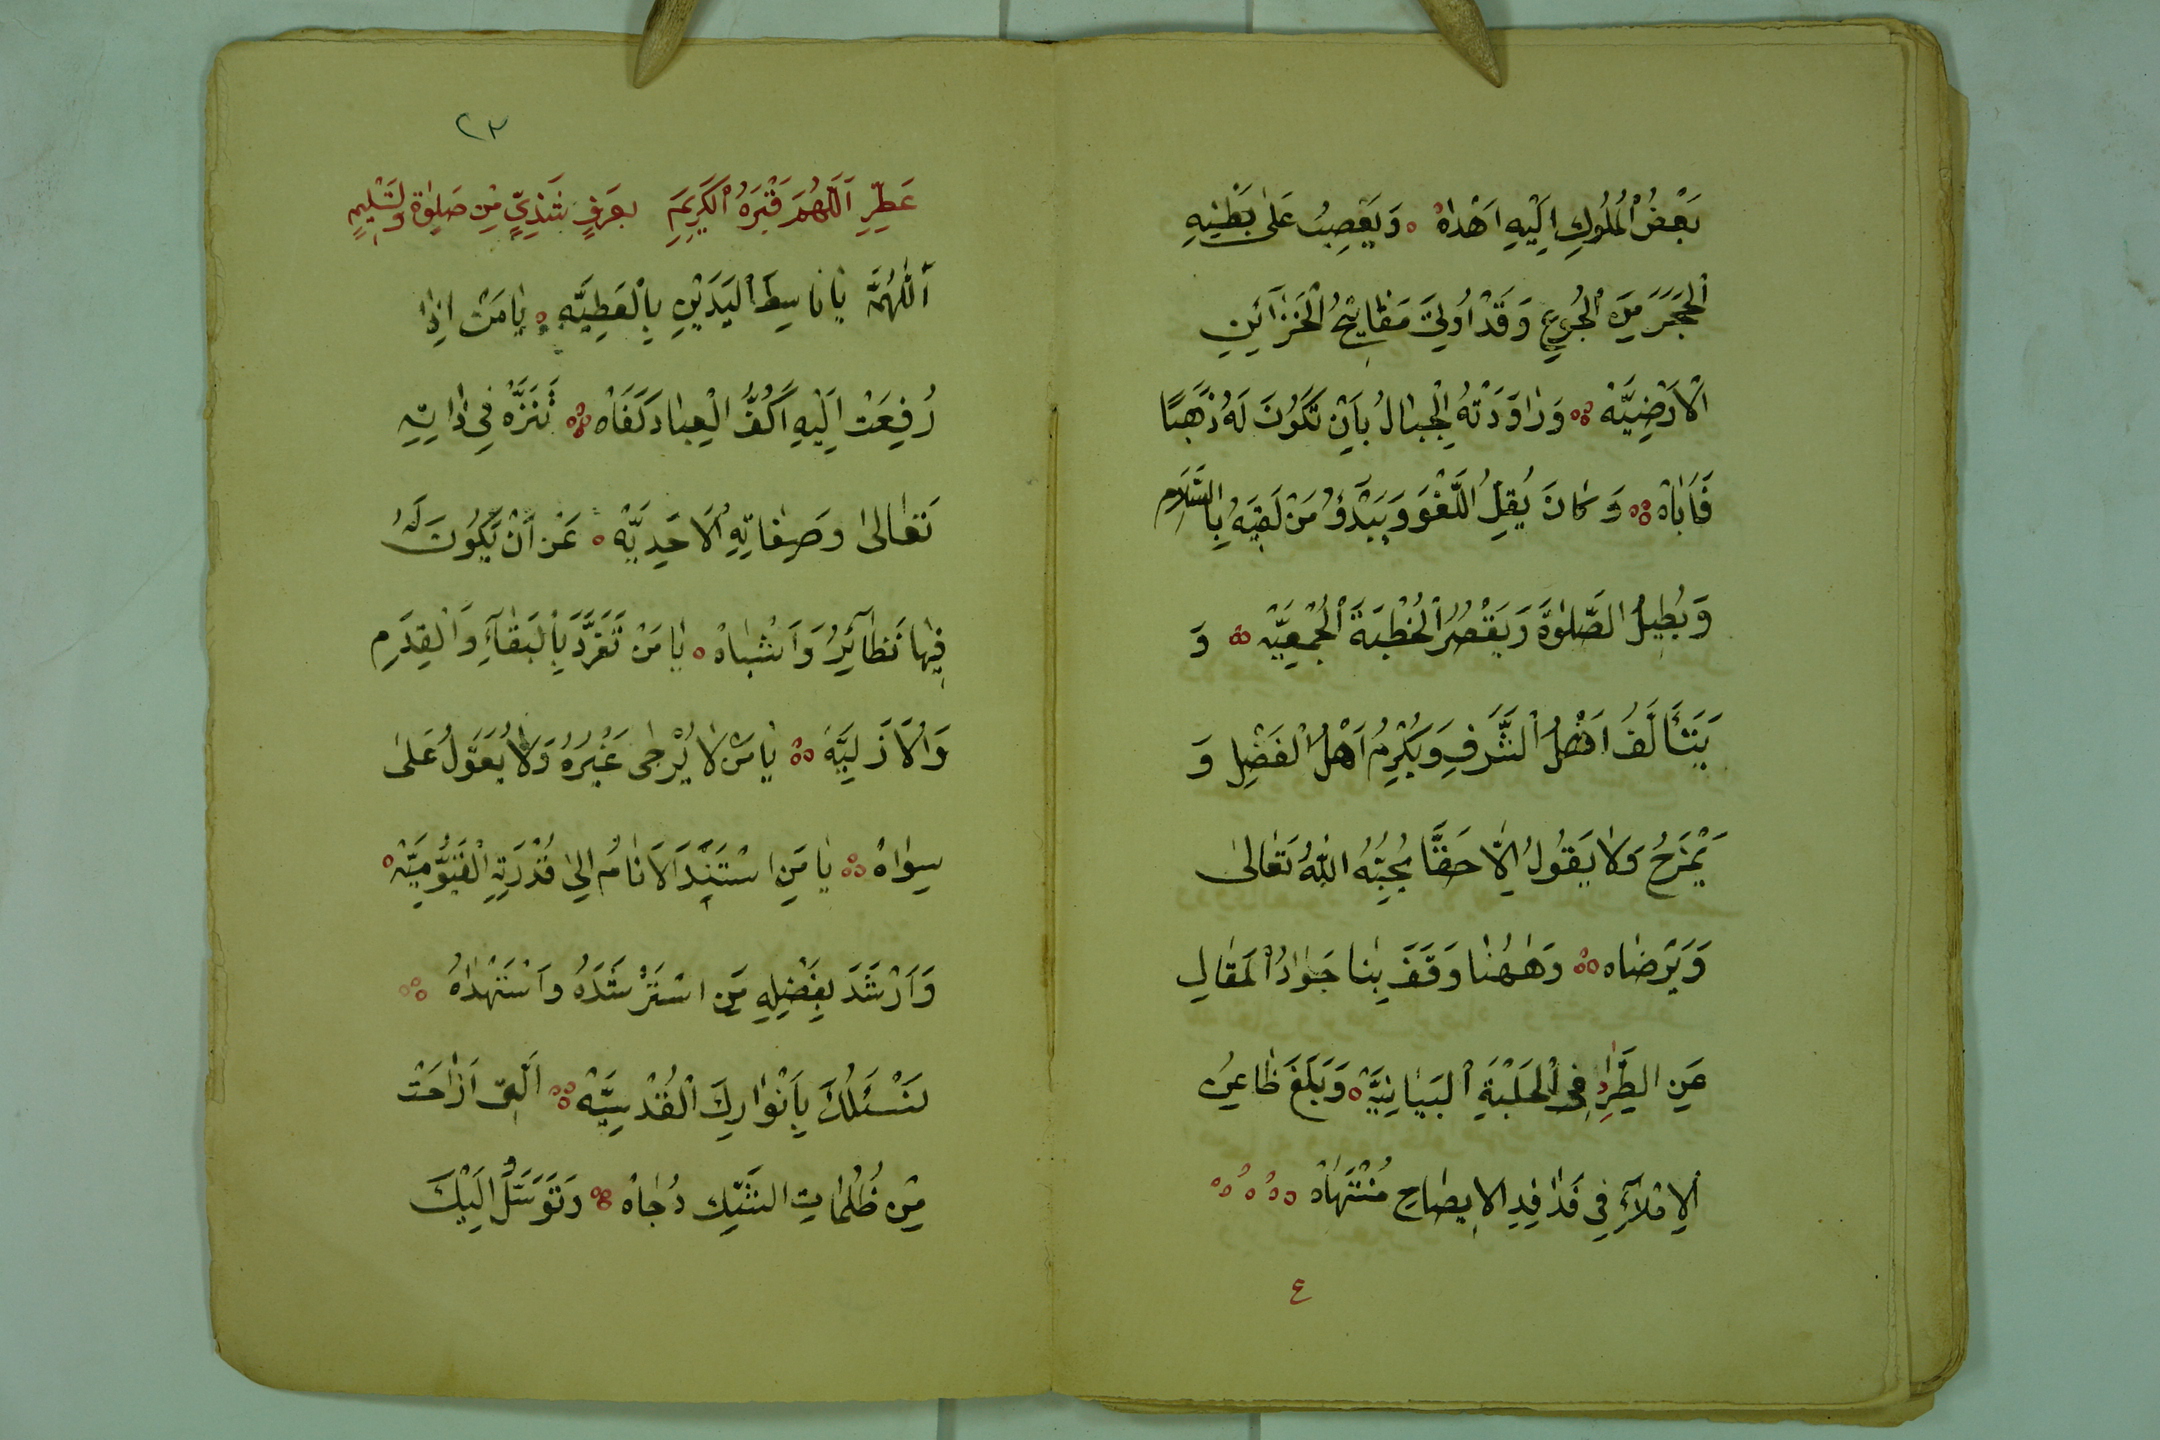 بَعْضُ الْمُلُوكِ اِلَيْهِ اَهْدٰاهُ ۰ وَيَعْصِبُ عَلٰى بَطْنِهِ
الْحَجَرَ مِنَ الْجُوعِ وَقَدْ اُوتِيَ مَفَاتِيحُ الْخَزَآئِنِ
الْاَرْضِيَّهْ ۰ وَرَاوَدَتْهُ الْجِبَالُ بِاَنْ تَكُونَ لَهُ ذَهَبًا
فَاَبَاهْ ۰ وَكَانَ يُقِلُّ اللَّغْوَ وَيَبْدَؤُ مَنْ لَقِيَهُ بِالسَّلَامِ
وَيُطِيلُ الصَّلٰوةَ وَيَقْصُرُ الْخُطْبَةَ الْجُمُعِيَّه ۰ وَ
يَتَأَلَّفُ اَهْلُ الشَّرَفِ وَيُكْرِمُ اَهْلُ الْفَضْلِ وَ
يَمْزَحُ وَلَا يَقُولُ اِلَّا حَقًّا يُحِبُّهُ اللّٰهُ تَعَالٰى
وَيَرْضَاه ۰ وَهٰهُنَا وَقَفَ بِنَا جَوَادُ الْمَقَالِ
عَنِ الطِّرَادِ فِى الْحَلْبَةِ الْبَيَانِيَّهْ ۰ وَبَلَغَ ظَاعِنُ
الْاِمْلَآءِ فِي فَدَافِدِ الْاِيضَاحِ مُنْتَهَاهْ ۰
٤
٢٣
عَطِّرِ اَللّٰهُمَّ قَبْرَهُ الْكَرِيمَ بِعَرْفٍ شَذِيٍّ مِنْ صَلٰوةٍ وَتَسْلِيمٍ
اَللّٰهُمَّ يَا بَاسِطَ الْيَدَيْنِ بِالْعَطِيَّهِ ۰ يَا مَنْ اِذَا
رُفِعَتْ اِلَيْهِ اَكُفُّ الْعِبَادِ كَفَاهْ ۰ تَنَزَّهَ فِي ذَاتِهِ
تَعَالٰى وَصِفَاتِهِ الْاَحَدِيَّهْ ۰ عَنْ اَنْ يَكُونَ لَهُ
فِيهَا نَظَائِرُ وَاَشْبَاهْ ۰ يَا مَنْ تَفَرَّدَ بِالْبَقَآءِ وَالْقِدَمِ
وَالْاَزَلِيَّهْ ۰ يَا مَنْ لَا يُرْجٰى غَيْرُهُ وَلَا يُعَوَّلُ عَلٰى
سِوَاهُ ۰ يَا مَنِ اسْتَنَدَ الْاَنَامُ اِلٰى قُدْرَتِهِ الْقَيُّومِيَّهْ ۰
وَاَرْشَدَ بِفَضْلِهِ مَنِ اسْتَرْشَدَهُ وَاسْتَهْدَاهُ ۰
نَسْئَلُكَ بِاَنْوَارِكَ الْقُدْسِيَّهْ ۰ الَّتِى اَزَاحَتْ
مِنْ ظُلُمَاتِ الشَّكِ دُجَاهْ ۰ وَنَتَوَسَّلُ اِلَيْكَ